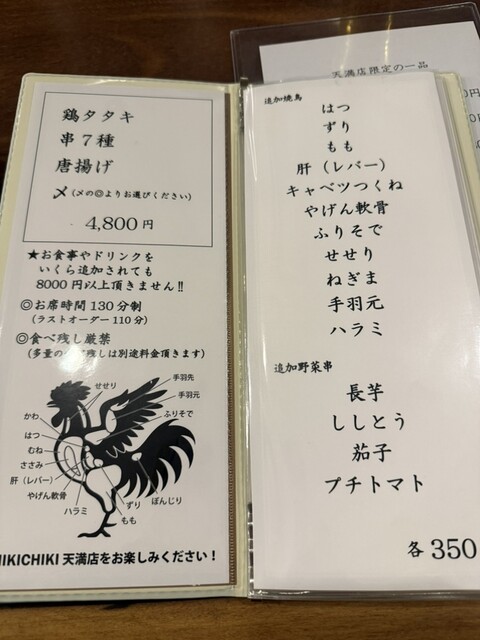 鶏タタキ
串7種
唐揚げ
〆(〆の◎よりお選びください)
4,800円
★お食事やドリンクを
いくら追加されても
8000円以上頂きません‼
◎お席時間130分制
(ラストオーダー110分)
◎食べ残し厳禁
(多量の 残しは別途料金頂きます)
手羽先
せせり
手羽元
ふりそで
かわ
はつ
むね
ささみ
肝(レバー)
やげん軟骨
ハラミ
もも
ずり
ぼんじり
HIKICHIKI 天満店をお楽しみください!
天満店限定の一品
円
追加焼鳥
はつ
ずり
もも
肝(レバー)
キャベツつくね
やげん軟骨
ふりそで
せせり
ねぎま
手羽元
ハラミ
追加野菜串
長芋
ししとう
茄子
プチトマト
各350